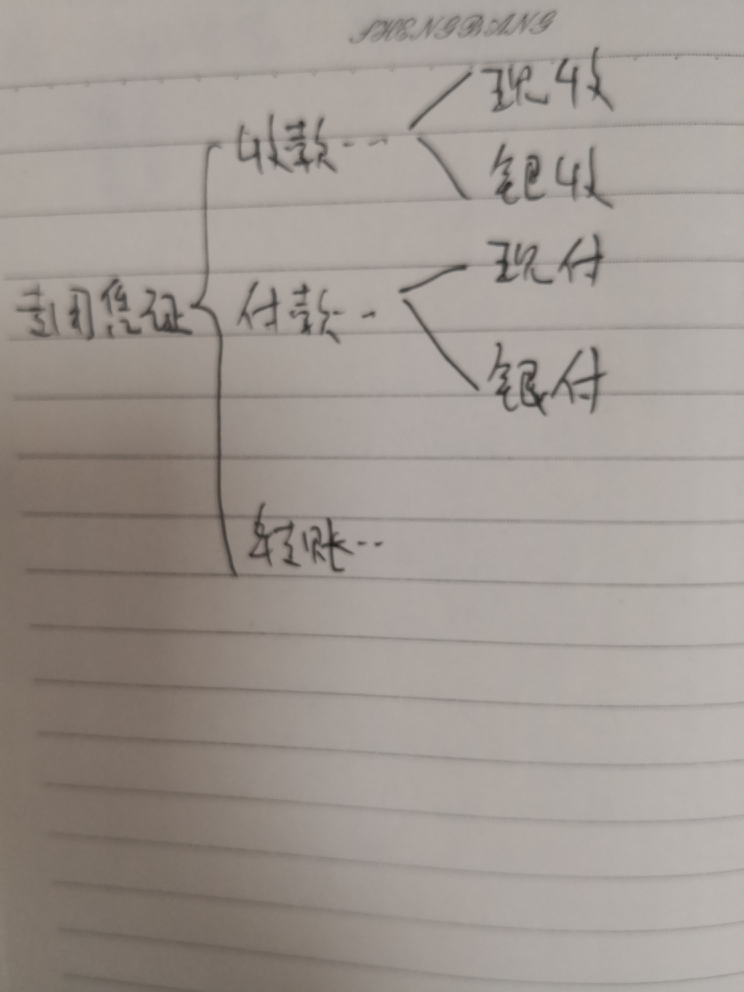 SHENGBANG
现收
收款··
银收
现付
专用凭证
付款··
银付
转账··